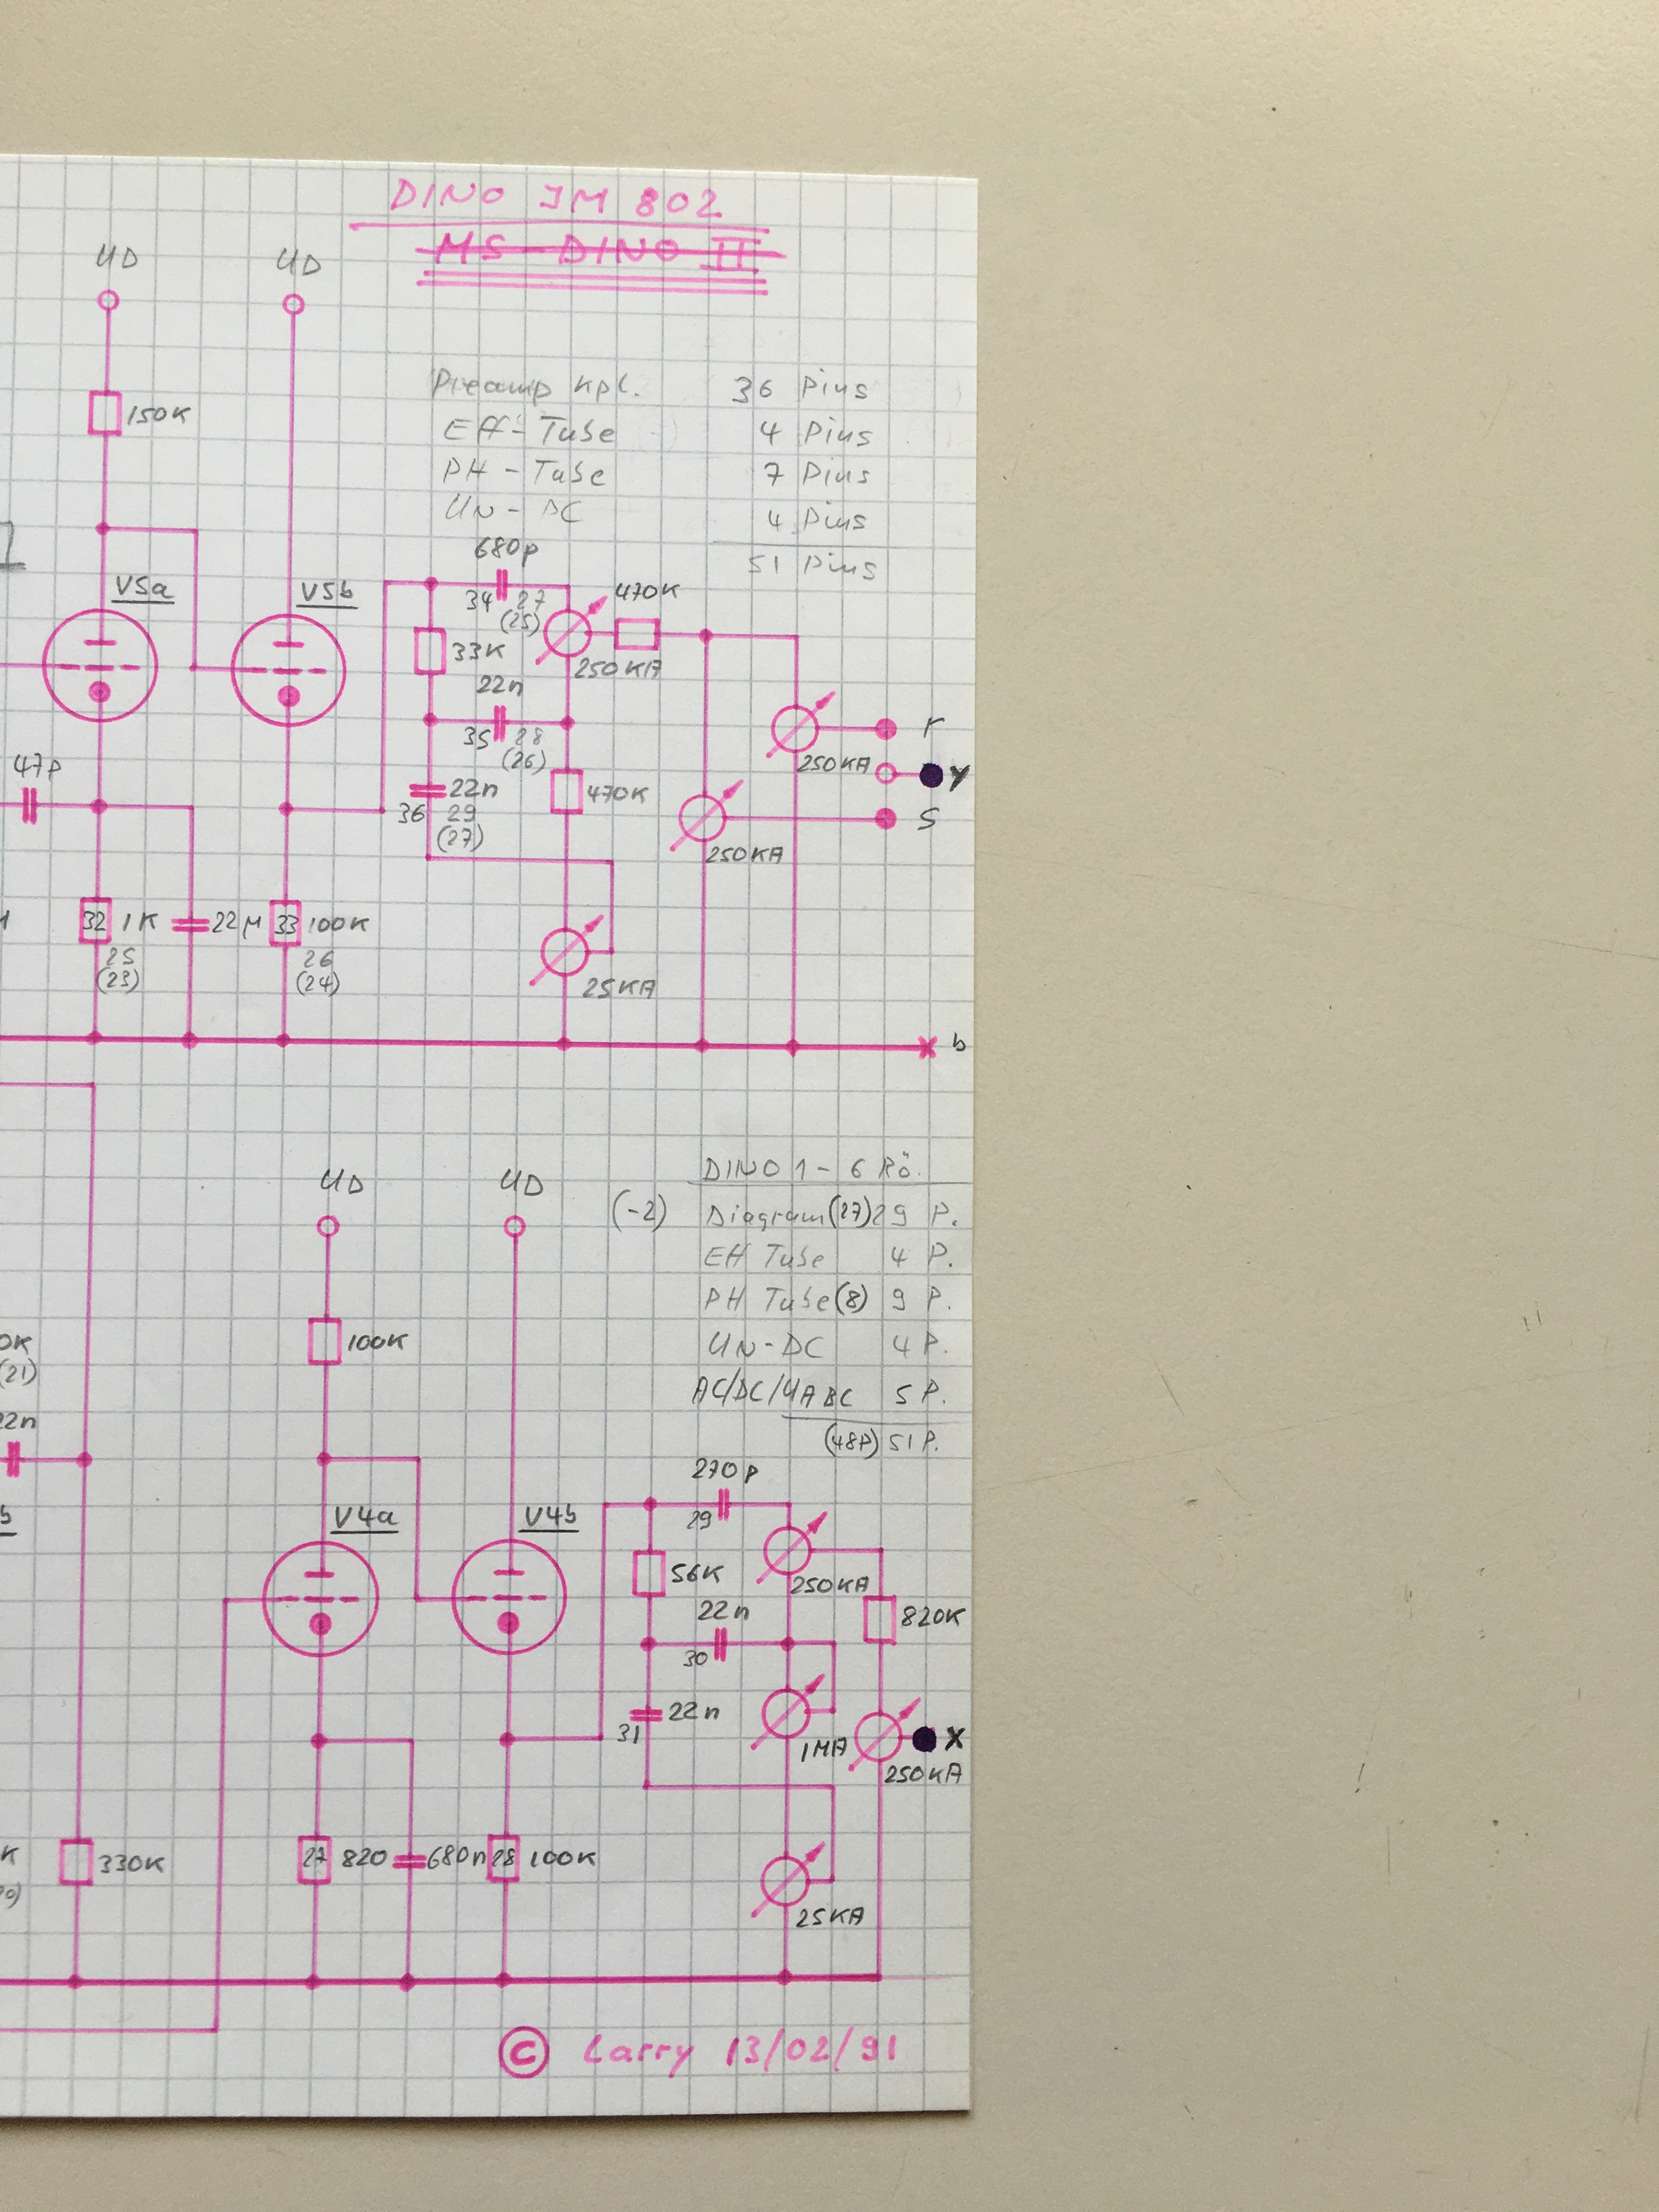 DINO JM 802
MS-DINO II
UD UD
Preamp kpl. 36 Pins
Eff-Tube 4 Pins
PH-Tube 7 Pins
UN-DC 4 Pins
51 Pins
150K
V5a V5b
680p
34 27
(25)
470K
33K
250KA
22n
35 28
(26)
r
250KA
Y
S
47p
22n
36 29
(27)
470K
250KA
32 1K 22µ 33 100K
25
(23)
26
(24)
25KA
b
UD UD
DINO 1-6 Rö.
(-2) Diagram (27) 29 P.
Eff Tube 4 P.
PH Tube (8) 9 P.
UN-DC 4 P.
AC/DC/UABC 5 P.
(48P) 51 P.
0K
(21)
100K
22n
270p
29
V4a V4b
56K
250KA
22n
30
820K
22n
31
1MA
X
250KA
K
330K
27 820 680n 28 100K
25KA
© Larry 13/02/91